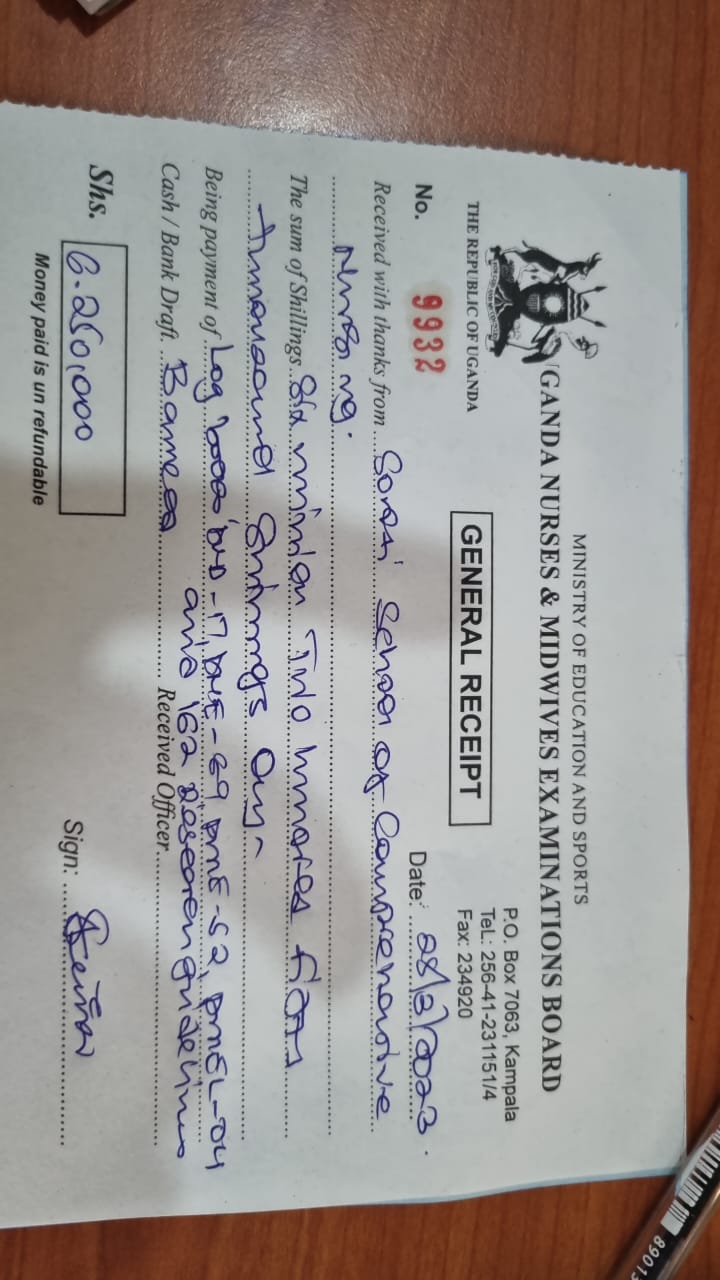 MINISTRY OF EDUCATION AND SPORTS
GANDA NURSES & MIDWIVES EXAMINATIONS BOARD
THE REPUBLIC OF UGANDA
P.O. Box 7063, Kampala
Tel.: 256-41-231151/4
Fax: 234920
GENERAL RECEIPT
No. 9932
Date: 28/2/2023.
Received with thanks from Soroti School of Comprehensive
Nursing.
The sum of Shillings Six million Two hundred fifty
thousand Shillings Only
Being payment of Log books DMSL-04
and 162 Research guidelines
Cash / Bank Draft Received Officer
Shs. 6.250,000
Sign:
Money paid is un refundable
8901